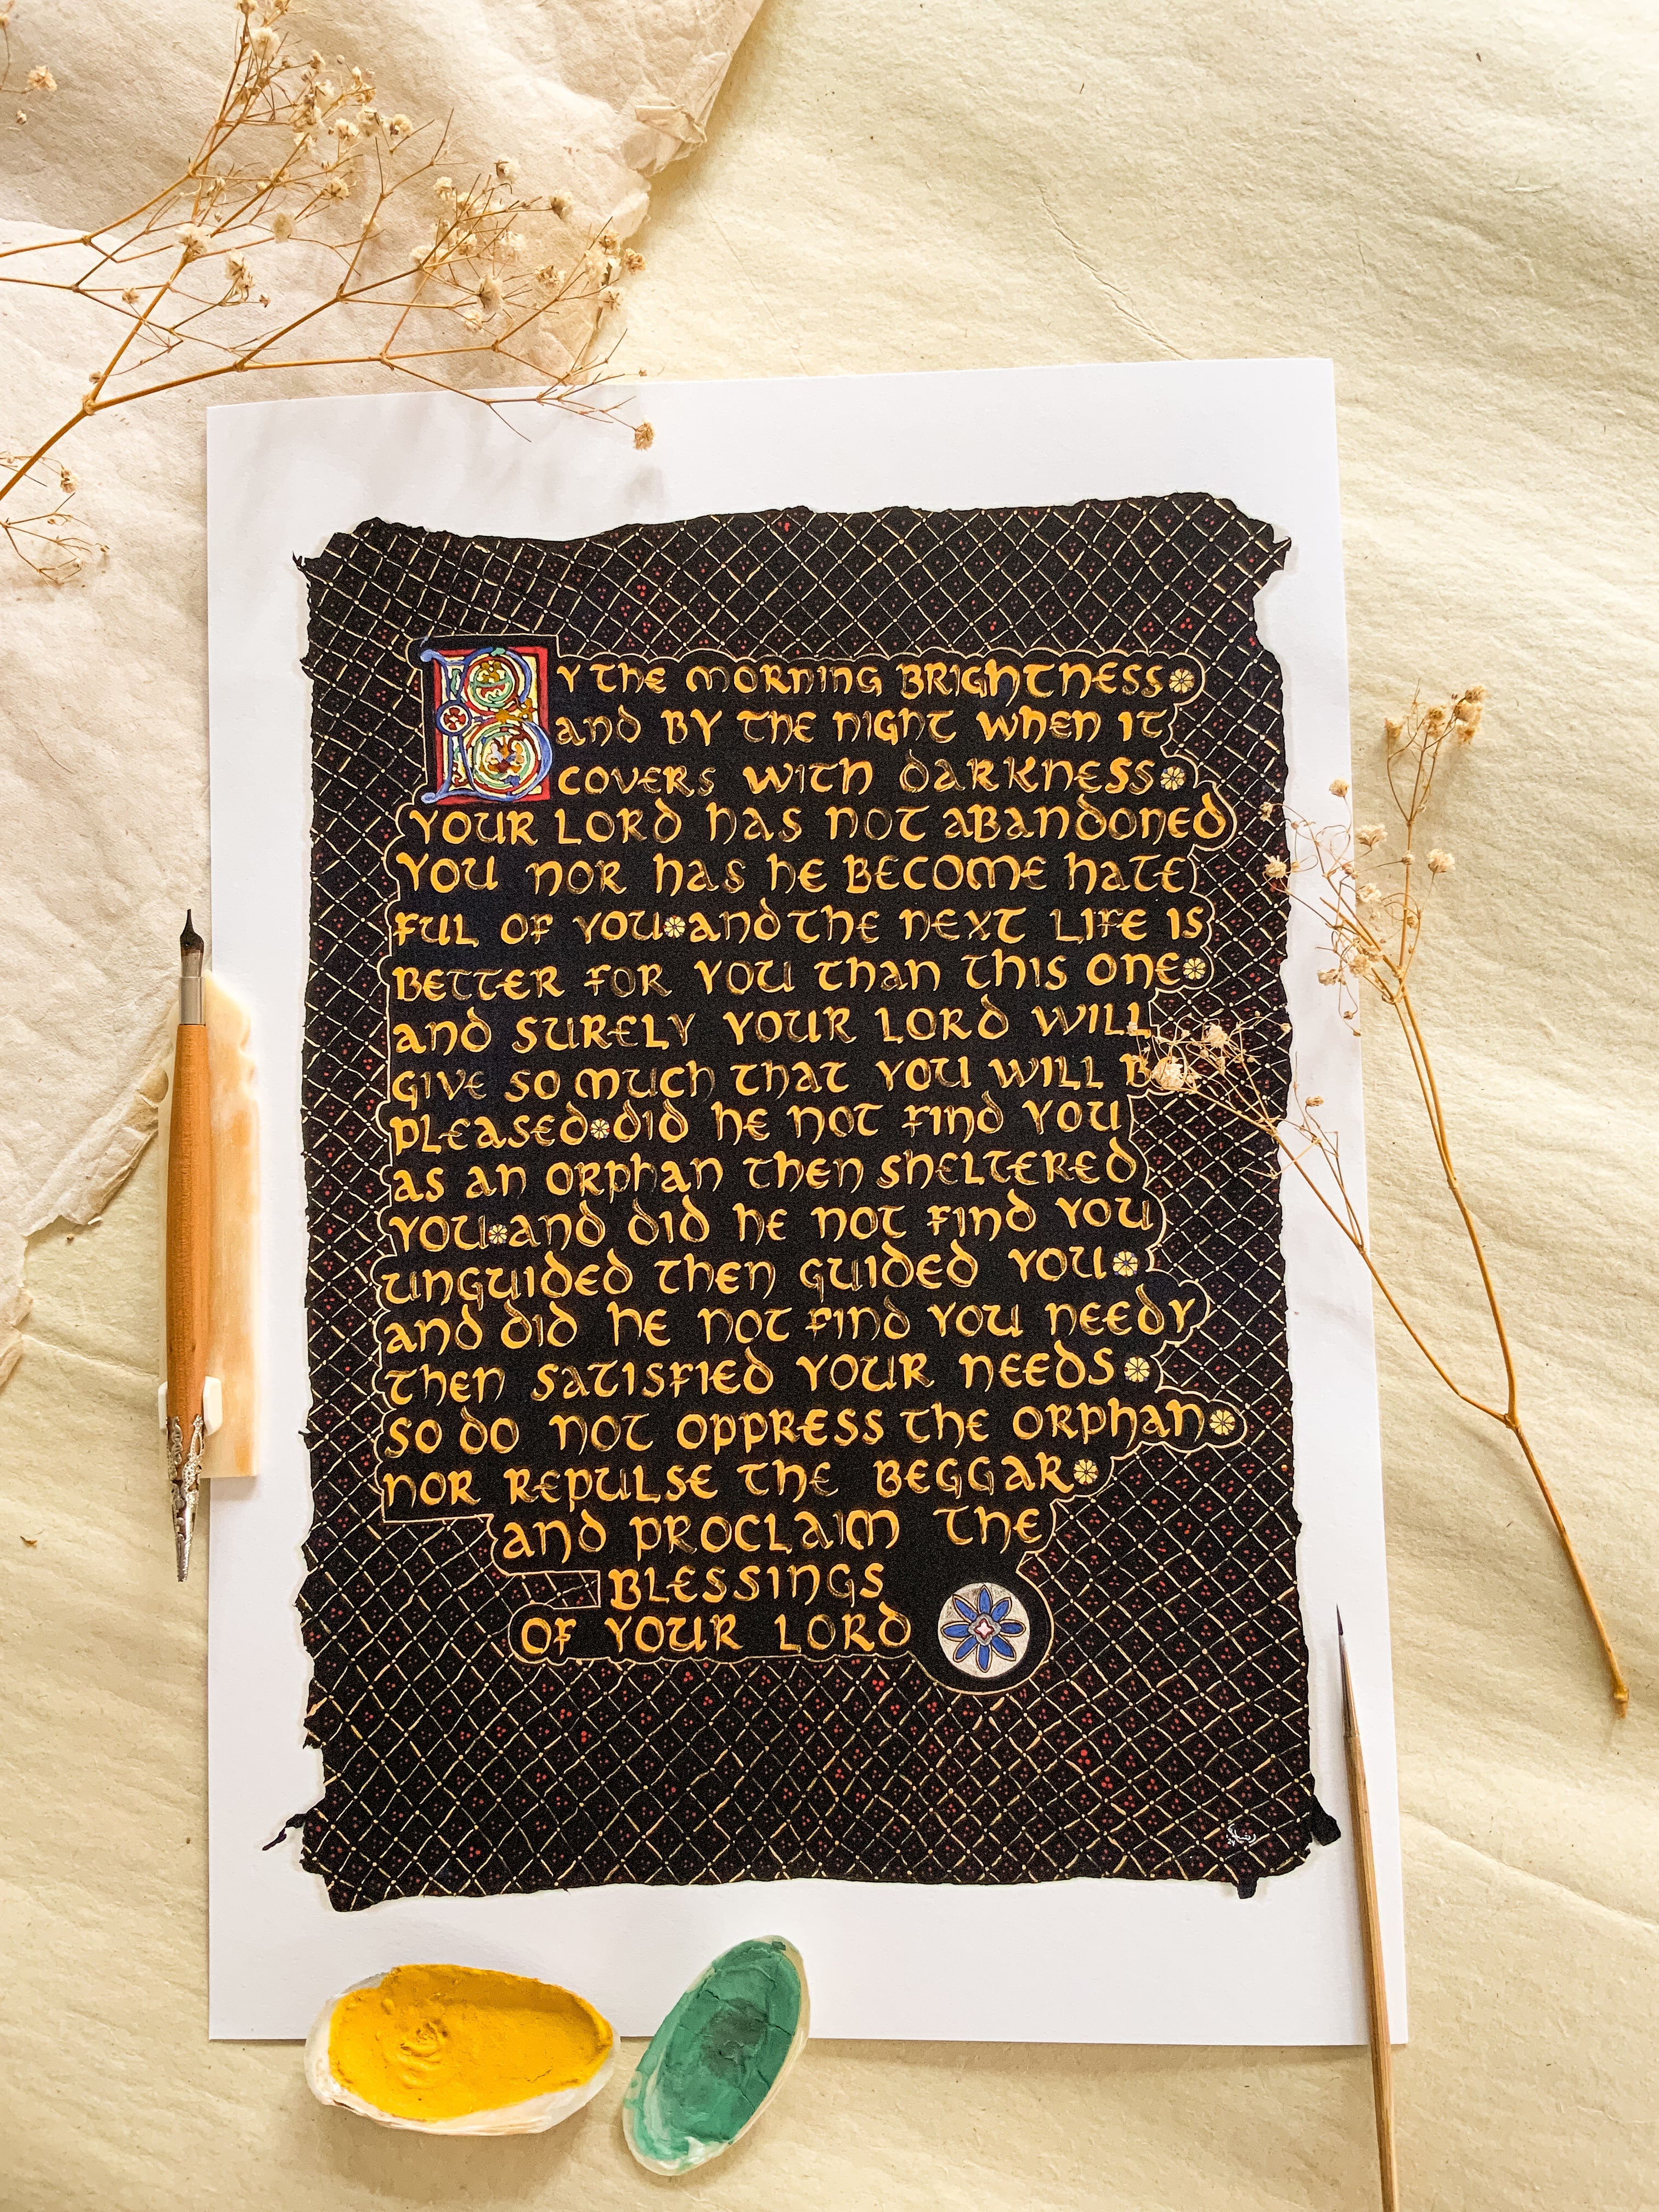 BY THE MORNING BRIGHTNESS
AND BY THE NIGHT WHEN IT
COVERS WITH DARKNESS
YOUR LORD HAS NOT ABANDONED
YOU NOR HAS HE BECOME HATE
FUL OF YOU AND THE NEXT LIFE IS
BETTER FOR YOU THAN THIS ONE
AND SURELY YOUR LORD WILL
GIVE SO MUCH THAT YOU WILL BE
PLEASED DID HE NOT FIND YOU
AS AN ORPHAN THEN SHELTERED
YOU AND DID HE NOT FIND YOU
UNGUIDED THEN GUIDED YOU
AND DID HE NOT FIND YOU NEEDY
THEN SATISFIED YOUR NEEDS
SO DO NOT OPPRESS THE ORPHAN
NOR REPULSE THE BEGGAR
AND PROCLAIM THE
BLESSINGS
OF YOUR LORD